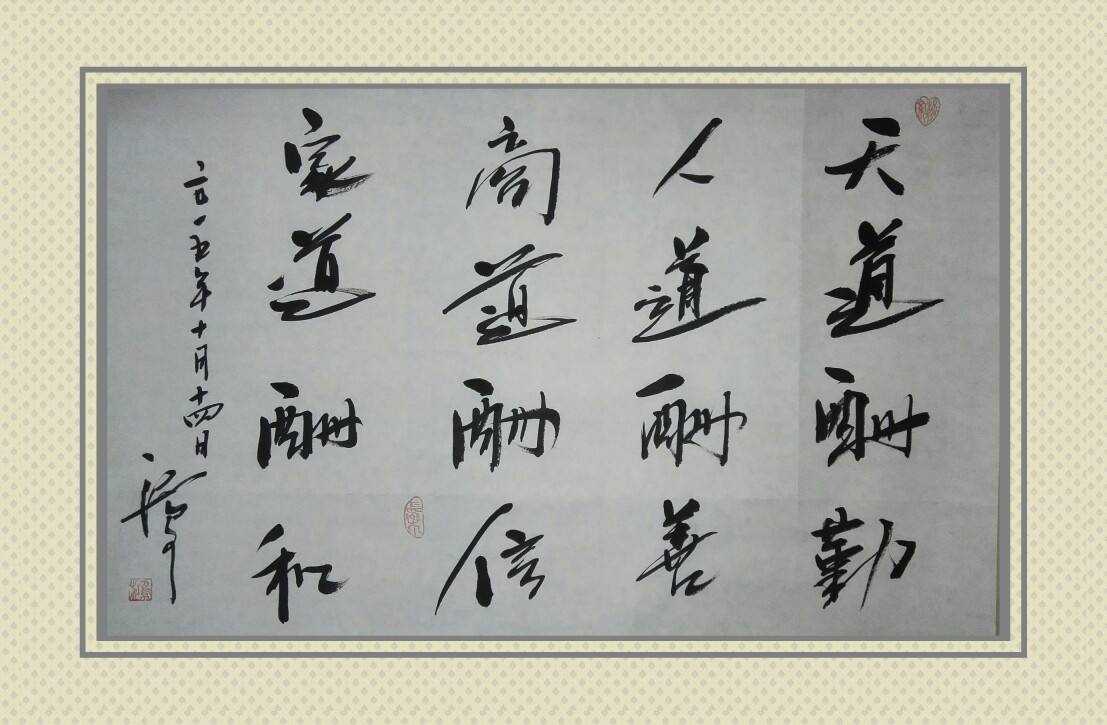 天道酬勤
人道酬善
商道酬信
家道酬和
二〇一五年十月十四日